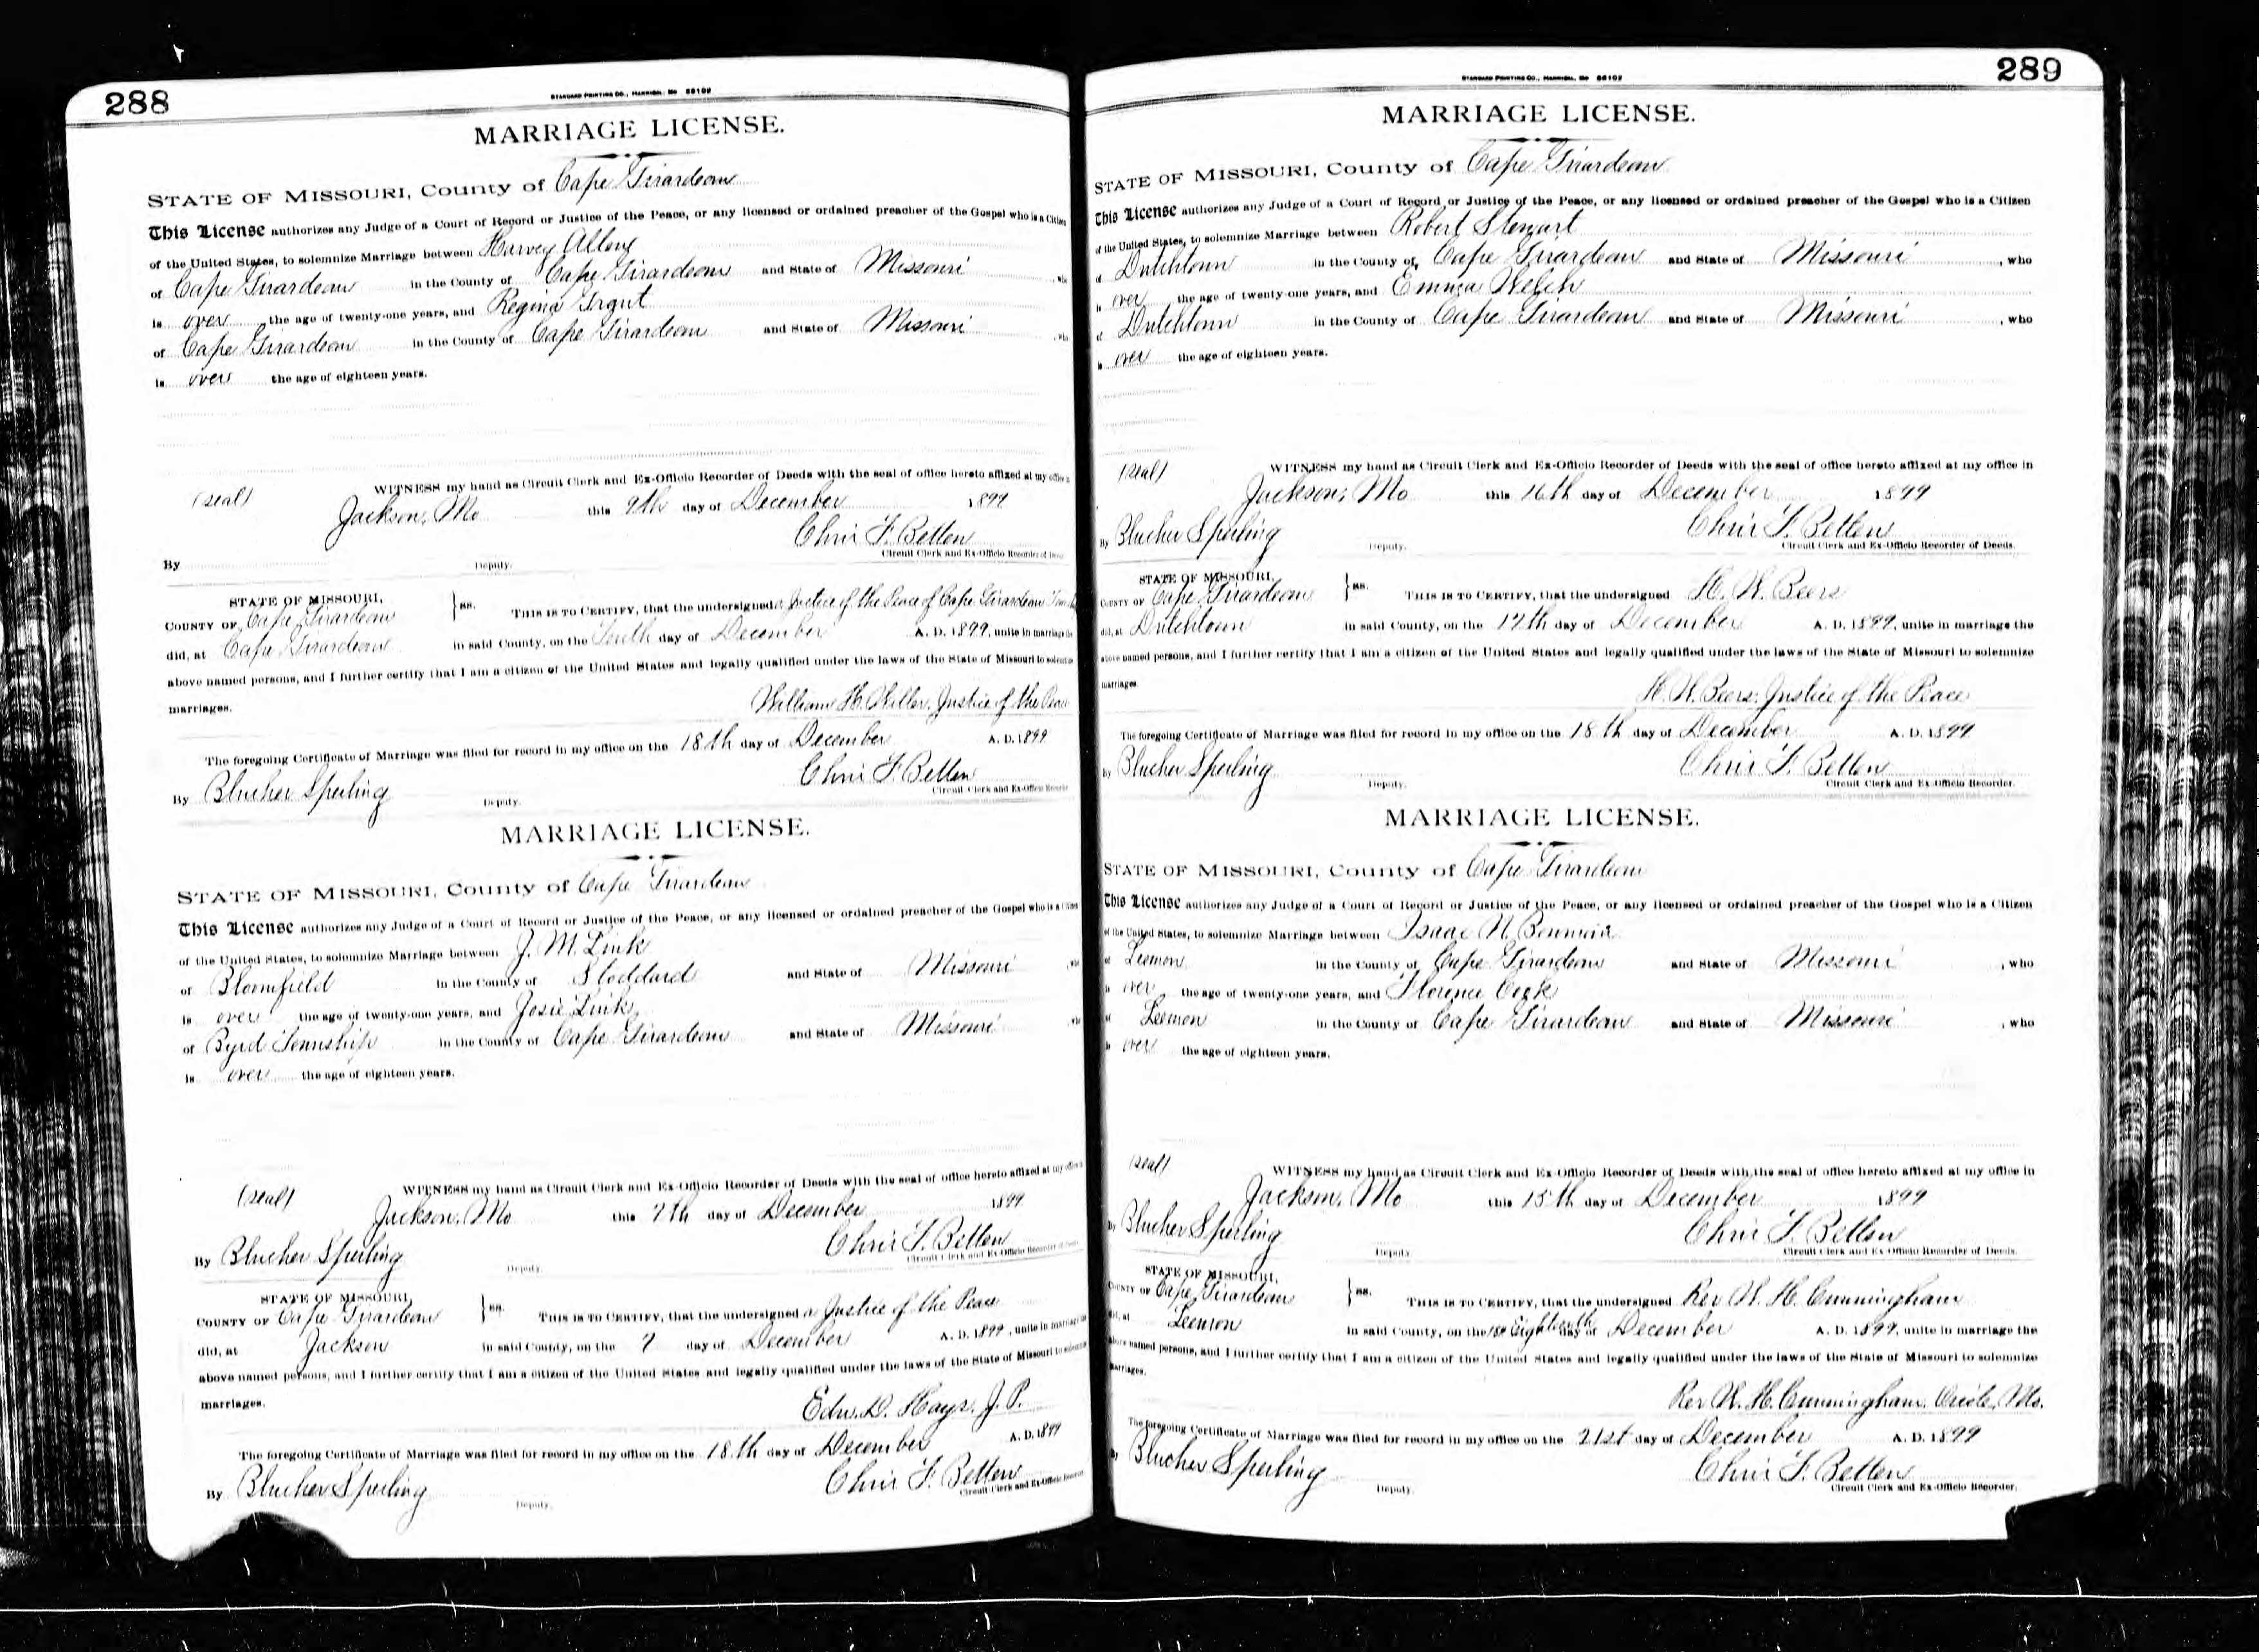 288
STANDARD PRINTING CO., HANNIBAL, MO 88102
MARRIAGE LICENSE.
STATE OF MISSOURI, County of Cape Girardeau
This License authorizes any Judge of a Court of Record or Justice of the Peace, or any licensed or ordained preacher of the Gospel who is a Citizen
of the United States, to solemnize Marriage between Harvey
of Cape Girardeau in the County of Cape Girardeau and State of Missouri
is over the age of twenty-one years, and Regina
of Cape Girardeau in the County of Cape Girardeau and State of Missouri
is over the age of eighteen years.
WITNESS my hand as Circuit Clerk and Ex-Officio Recorder of Deeds with the seal of office hereto affixed at my office
(seal) Jackson, Mo this 9th day of December 1899
Chris F. Betten
Circuit Clerk and Ex-Officio Recorder of Deeds
By Deputy.
STATE OF MISSOURI,
COUNTY OF Cape Girardeau ss. THIS IS TO CERTIFY, that the undersigned a Justice of the Peace of Cape Girardeau
did, at Cape Girardeau in said County, on the Tenth day of December A. D. 1899, unite in marriage the
above named persons, and I further certify that I am a citizen of the United States and legally qualified under the laws of the State of Missouri to solemnize
marriages.
William H. Miller, Justice of the Peace
The foregoing Certificate of Marriage was filed for record in my office on the 18th day of December A. D. 1899
Chris F. Betten
By Blucher Sperling Deputy. Circuit Clerk and Ex-Officio Recorder
MARRIAGE LICENSE.
STATE OF MISSOURI, County of Cape Girardeau
This License authorizes any Judge of a Court of Record or Justice of the Peace, or any licensed or ordained preacher of the Gospel who is a Citizen
of the United States, to solemnize Marriage between J. M. Link
of Bloomfield in the County of Stoddard and State of Missouri
is over the age of twenty-one years, and Josie Link
of Byrd Township in the County of Cape Girardeau and State of Missouri
is over the age of eighteen years.
WITNESS my hand as Circuit Clerk and Ex-Officio Recorder of Deeds with the seal of office hereto affixed at my office
(seal) Jackson, Mo this 7th day of December 1899
Chris F. Betten
By Blucher Sperling Deputy. Circuit Clerk and Ex Officio Recorder of
STATE OF MISSOURI,
COUNTY OF Cape Girardeau ss. THIS IS TO CERTIFY, that the undersigned a Justice of the Peace
did, at Jackson in said County, on the 7 day of December A. D. 1899, unite in marriage
above named persons, and I further certify that I am a citizen of the United States and legally qualified under the laws of the State of Missouri to solemnize
marriages.
Edw. D. Hays, J. P.
The foregoing Certificate of Marriage was filed for record in my office on the 18th day of December A. D. 1899
Chris F. Betten
By Blucher Sperling Deputy. Circuit Clerk and Ex-Officio Recorder
289
STANDARD PRINTING CO., HANNIBAL, MO 88102
MARRIAGE LICENSE.
STATE OF MISSOURI, County of Cape Girardeau
This License authorizes any Judge of a Court of Record or Justice of the Peace, or any licensed or ordained preacher of the Gospel who is a Citizen
of the United States, to solemnize Marriage between Robert Stewart
of Dutchtown in the County of Cape Girardeau and State of Missouri, who
is over the age of twenty-one years, and Emma Welch
of Dutchtown in the County of Cape Girardeau and State of Missouri, who
is over the age of eighteen years.
WITNESS my hand as Circuit Clerk and Ex-Officio Recorder of Deeds with the seal of office hereto affixed at my office in
(seal) Jackson, Mo this 16th day of December 1899
Chris F. Betten
By Blucher Sperling Deputy. Circuit Clerk and Ex-Officio Recorder of Deeds.
STATE OF MISSOURI,
COUNTY OF Cape Girardeau ss. THIS IS TO CERTIFY, that the undersigned H. W. Beers
did, at Dutchtown in said County, on the 17th day of December A. D. 1899, unite in marriage the
above named persons, and I further certify that I am a citizen of the United States and legally qualified under the laws of the State of Missouri to solemnize
marriages.
H. W. Beers, Justice of the Peace
The foregoing Certificate of Marriage was filed for record in my office on the 18th day of December A. D. 1899
Chris F. Betten
By Blucher Sperling Deputy. Circuit Clerk and Ex-Officio Recorder.
MARRIAGE LICENSE.
STATE OF MISSOURI, County of Cape Girardeau
This License authorizes any Judge of a Court of Record or Justice of the Peace, or any licensed or ordained preacher of the Gospel who is a Citizen
of the United States, to solemnize Marriage between Isaac N.
of Leemon in the County of Cape Girardeau and State of Missouri, who
is over the age of twenty-one years, and Florence Cook
of Leemon in the County of Cape Girardeau and State of Missouri, who
is over the age of eighteen years.
WITNESS my hand as Circuit Clerk and Ex-Officio Recorder of Deeds with the seal of office hereto affixed at my office in
(seal) Jackson, Mo this 15th day of December 1899
Chris F. Betten
By Blucher Sperling Deputy Circuit Clerk and Ex Officio Recorder of Deeds.
STATE OF MISSOURI,
COUNTY OF Cape Girardeau ss. THIS IS TO CERTIFY, that the undersigned Rev W. H. Cunningham
did, at Leemon in said County, on the 18th Eighteenth day of December A. D. 1899, unite in marriage the
above named persons, and I further certify that I am a citizen of the United States and legally qualified under the laws of the State of Missouri to solemnize
marriages.
Rev W. H. Cunningham, Oriole, Mo.
The foregoing Certificate of Marriage was filed for record in my office on the 21st day of December A. D. 1899
Chris F. Betten
By Blucher Sperling Deputy. Circuit Clerk and Ex-Officio Recorder.